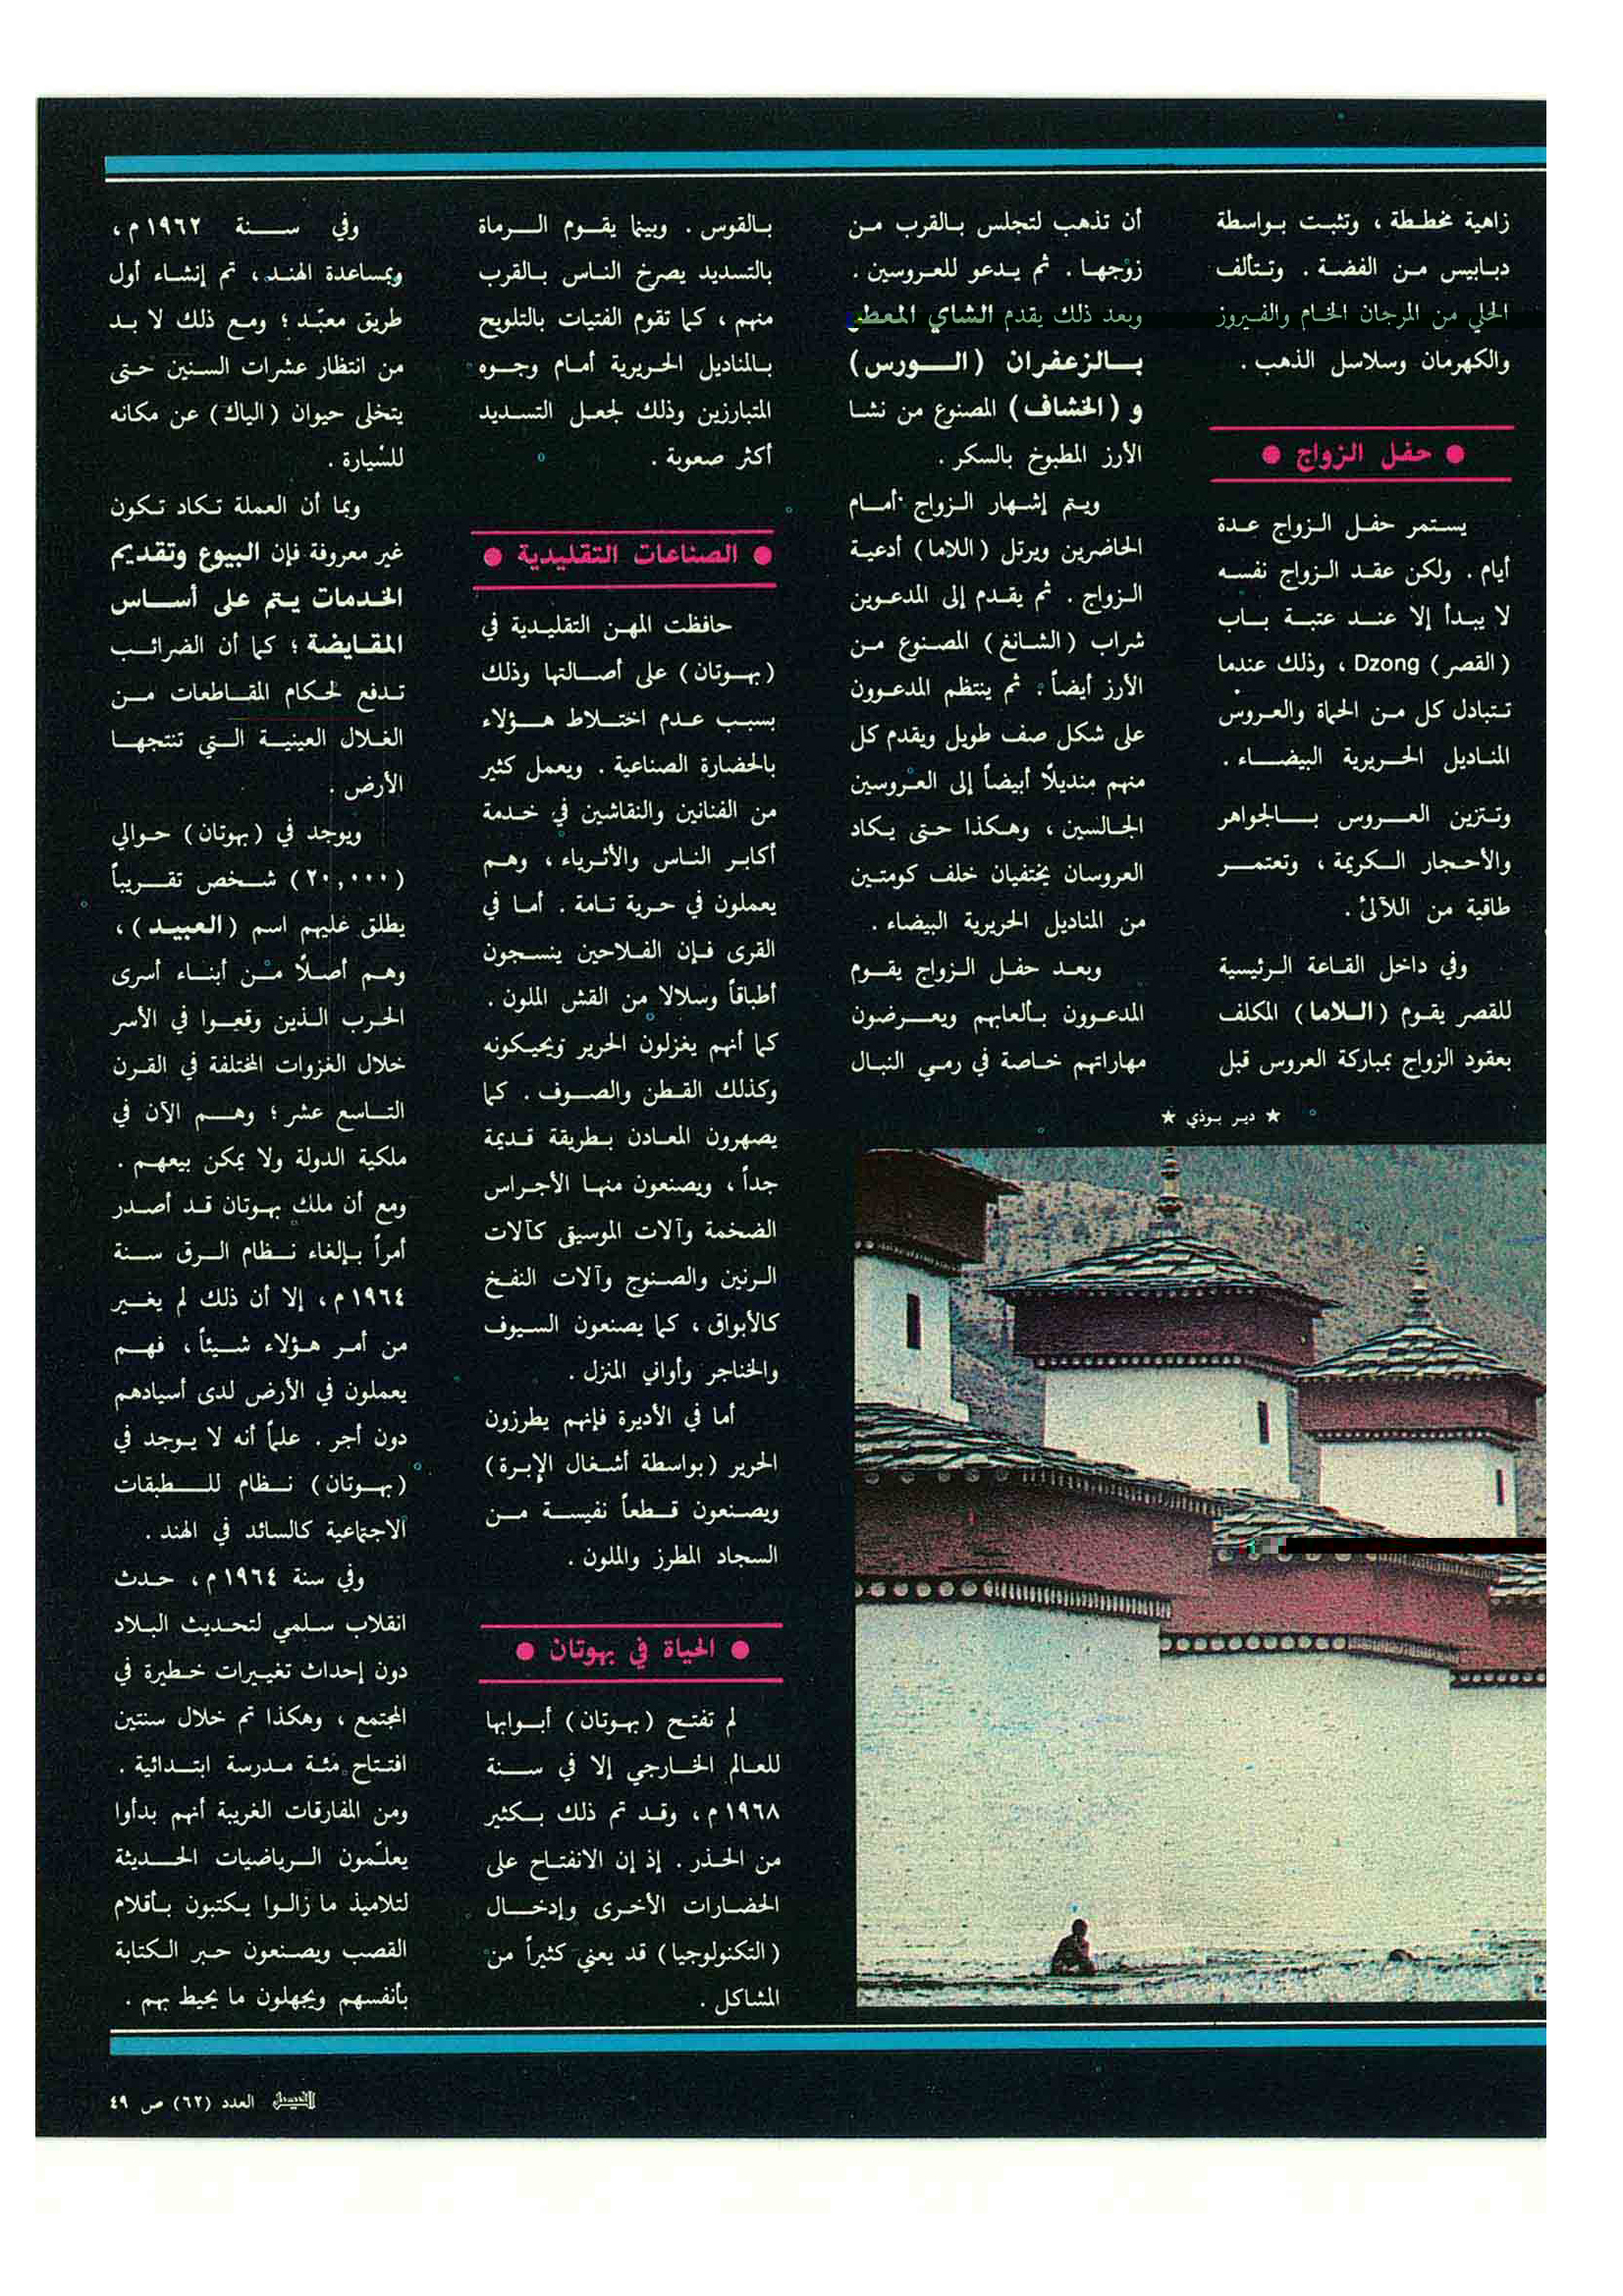 زاهية مخططة ، وتثبت بواسطة
دبابيس من الفضة . وتتألف
الحلي من المرجان الخام والفيروز
والكهرمان وسلاسل الذهب .
● حفل الزواج ●
يستمر حفل الزواج عدة
أيام . ولكن عقد الزواج نفسه
لا يبدأ إلا عند عتبة باب
(القصر) Dzong ، وذلك عندما
تتبادل كل من الحماة والعروس
المناديل الحريرية البيضاء .
وتتزين العروس بالجواهر
والأحجار الكريمة ، وتعتمر
طاقية من اللآلئ .
وفي داخل القاعة الرئيسية
للقصر يقوم (اللاما) المكلف
بعقود الزواج بمباركة العروس قبل
أن تذهب لتجلس بالقرب من
زوجها . ثم يدعو للعروسين .
وبعد ذلك يقدم الشاي المعطر
بالزعفران (الورس)
و (الخشاف) المصنوع من نشا
الأرز المطبوخ بالسكر .
ويتم إشهار الزواج أمام
الحاضرين ويرتل (اللاما) أدعية
الزواج . ثم يقدم إلى المدعوين
شراب (الشانغ) المصنوع من
الأرز أيضاً . ثم ينتظم المدعوون
على شكل صف طويل ويقدم كل
منهم منديلًا أبيضاً إلى العروسين
الجالسين ، وهكذا حتى يكاد
العروسان يختفيان خلف كومتين
من المناديل الحريرية البيضاء .
وبعد حفل الزواج يقوم
المدعوون بألعابهم ويعرضون
مهاراتهم خاصة في رمي النبال
★ دير بوذي ★
بالقوس . وبينما يقوم الرماة
بالتسديد يصرخ الناس بالقرب
منهم ، كما تقوم الفتيات بالتلويح
بالمناديل الحريرية أمام وجوه
المتبارزين وذلك لجعل التسديد
أكثر صعوبة .
● الصناعات التقليدية ●
حافظت المهن التقليدية في
(بهوتان) على أصالتها وذلك
بسبب عدم اختلاط هؤلاء
بالحضارة الصناعية . ويعمل كثير
من الفنانين والنقاشين في خدمة
أكابر الناس والأثرياء ، وهم
يعملون في حرية تامة . أما في
القرى فإن الفلاحين ينسجون
أطباقاً وسلالا من القش الملون .
كما أنهم يغزلون الحرير ويحيكونه
وكذلك القطن والصوف . كما
يصهرون المعادن بطريقة قديمة
جداً ، ويصنعون منها الأجراس
الضخمة وآلات الموسيقى كآلات
الرنين والصنوج وآلات النفخ
كالأبواق ، كما يصنعون السيوف
والخناجر وأواني المنزل .
أما في الأديرة فإنهم يطرزون
الحرير (بواسطة أشغال الإبرة)
ويصنعون قطعاً نفيسة من
السجاد المطرز والملون .
● الحياة في بهوتان ●
لم تفتح (بهوتان) أبوابها
للعالم الخارجي إلا في سنة
١٩٦٨ م ، وقد تم ذلك بكثير
من الحذر . إذ إن الانفتاح على
الحضارات الأخرى وإدخال
(التكنولوجيا) قد يعني كثيراً من
المشاكل .
وفي سنة ١٩٦٢ م ،
وبمساعدة الهند ، تم إنشاء أول
طريق معبّد ؛ ومع ذلك لا بد
من انتظار عشرات السنين حتى
يتخلى حيوان (الياك) عن مكانه
للسيارة .
وبما أن العملة تكاد تكون
غير معروفة فإن البيوع وتقديم
الخدمات يتم على أساس
المقايضة ؛ كما أن الضرائب
تدفع لحكام المقاطعات من
الغلال العينية التي تنتجها
الأرض .
ويوجد في (بهوتان) حوالي
(٢٠,٠٠٠) شخص تقريباً
يطلق عليهم اسم (العبيد) ،
وهم أصلًا من أبناء أسرى
الحرب الذين وقعوا في الأسر
خلال الغزوات المختلفة في القرن
التاسع عشر ؛ وهم الآن في
ملكية الدولة ولا يمكن بيعهم .
ومع أن ملك بهوتان قد أصدر
أمراً بإلغاء نظام الرق سنة
١٩٦٤ م ، إلا أن ذلك لم يغير
من أمر هؤلاء شيئاً ، فهم
يعملون في الأرض لدى أسيادهم
دون أجر . علماً أنه لا يوجد في
(بهوتان) نظام للطبقات
الاجتماعية كالسائد في الهند .
وفي سنة ١٩٦٤ م ، حدث
انقلاب سلمي لتحديث البلاد
دون إحداث تغييرات خطيرة في
المجتمع ، وهكذا تم خلال سنتين
افتتاح مئة مدرسة ابتدائية .
ومن المفارقات الغريبة أنهم بدأوا
يعلّمون الرياضيات الحديثة
لتلاميذ ما زالوا يكتبون بأقلام
القصب ويصنعون حبر الكتابة
بأنفسهم ويجهلون ما يحيط بهم .
الفيصل العدد (٦٢) ص ٤٩